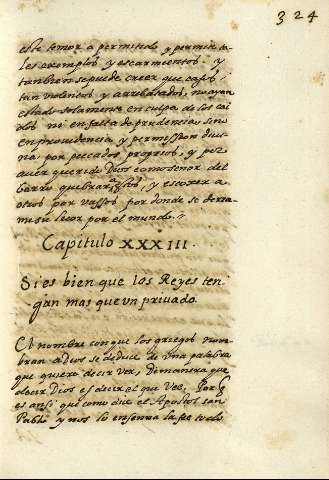 324
este temor a permitido y permite ta
les exemplos y escarmientos. y
tambien se puede creer que casos
tan violentos y arrebatados, no ayan
estado solamente en culpa de los cai
dos ni en falta de prudencia sino
en prouidencia y permission diui
na por peccados proprios, y por
auer querido Dios como señor del
barro quebrar a essos, y escoxer a
otros por vassos por donde se derra
me su licor por el mundo.
Capitulo XXXIII.
Si es bien que los Reyes ten
gan mas que vn priuado
El nombre con que los griegos nom
bran a Dios se deduce de vna palabra
que quiere decir ver, de manera que
decir Dios es decir el que Vee, Porq
es ansi que como dice el Apostol san
Pablo y nos lo enseña la fee todo